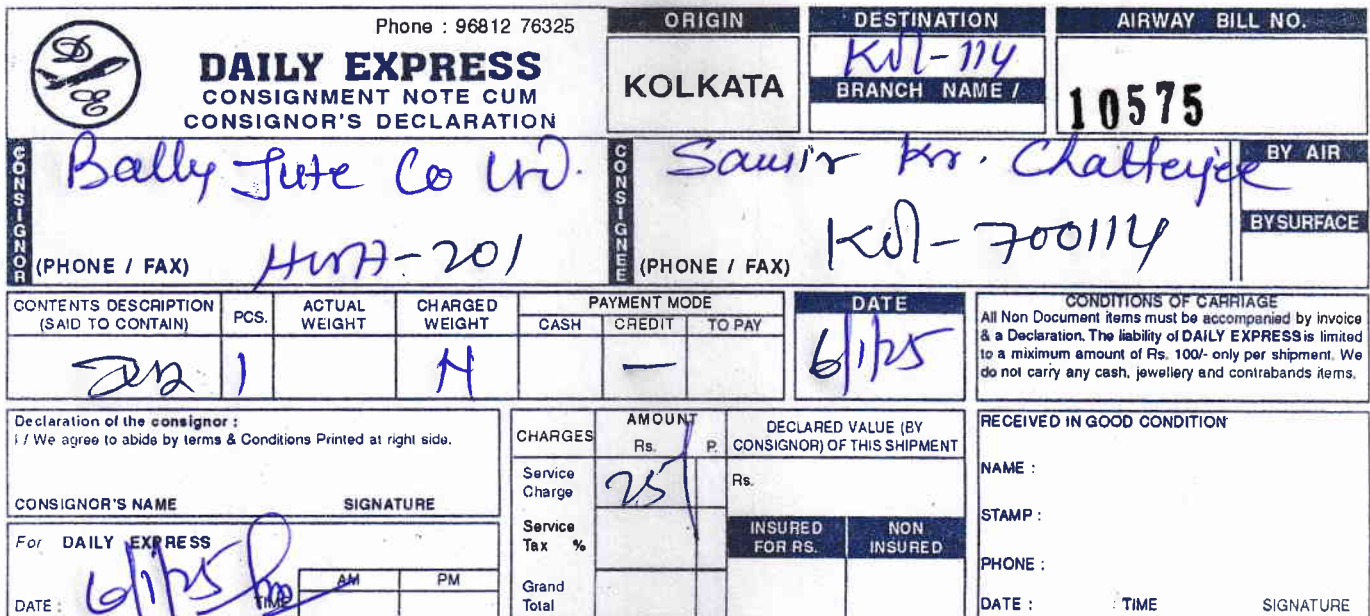 D E
Phone : 96812 76325
DAILY EXPRESS
CONSIGNMENT NOTE CUM
CONSIGNOR'S DECLARATION
ORIGIN
KOLKATA
DESTINATION
Kol-114
BRANCH NAME /
AIRWAY BILL NO.
10575
CONSIGNOR
Bally Jute Co Ltd.
(PHONE / FAX)
-201
CONSIGNEE
Samir Kr. Chatterjee
Kol-700114
(PHONE / FAX)
BY AIR
BY SURFACE
CONTENTS DESCRIPTION
(SAID TO CONTAIN)
PCS.
ACTUAL
WEIGHT
CHARGED
WEIGHT
PAYMENT MODE
CASH CREDIT TO PAY
1
—
DATE
6/1/25
CONDITIONS OF CARRIAGE
All Non Document items must be accompanied by invoice
& a Declaration. The liability of DAILY EXPRESS is limited
to a miximum amount of Rs. 100/- only per shipment. We
do not carry any cash, jewellery and contrabands items.
Declaration of the consignor :
I / We agree to abide by terms & Conditions Printed at right side.
CONSIGNOR'S NAME SIGNATURE
For DAILY EXPRESS
6/1/25
DATE : TIME AM PM
CHARGES AMOUNT
Rs. P.
Service
Charge
25/
Service
Tax %
Grand
Total
DECLARED VALUE (BY
CONSIGNOR) OF THIS SHIPMENT
Rs.
INSURED
FOR RS.
NON
INSURED
RECEIVED IN GOOD CONDITION
NAME :
STAMP :
PHONE :
DATE : TIME SIGNATURE